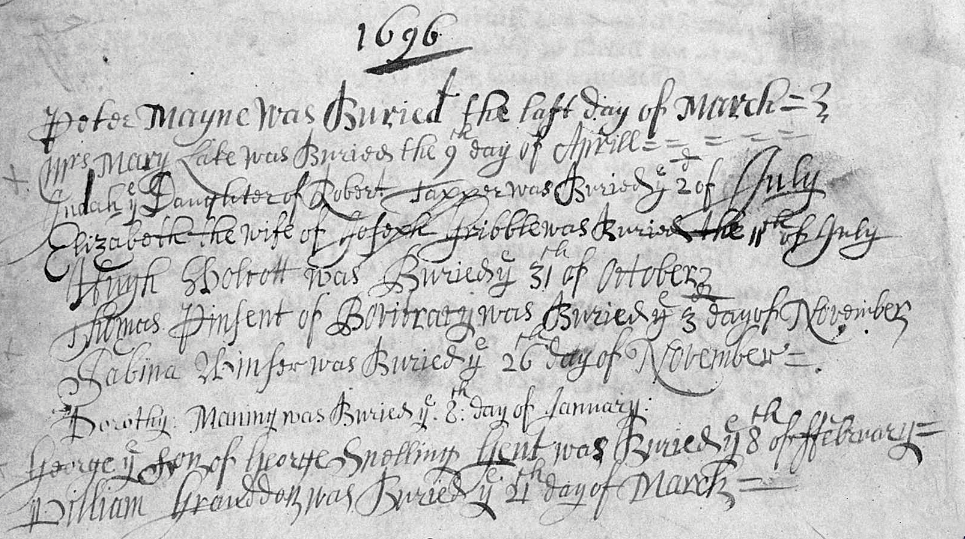 1696
Peter Mayne was Buried the last day of March =
Mrs Mary Lake was Buried the 9th day of Aprill = = = = =
Judah ye Daughter of Robert Tapper was Buried ye 2d of July
Elizabeth the wife of Joseph Gribble was Buried the 11th of July
Hugh Wolcott was Buried ye 31th of October
Thomas Pinsent of was Buried ye 3 day of November
Sabina Winser was Buried ye 26th day of November =.
Dorothy Maning was Buried ye. 8:th day of January:
George ye son of George Snelling Gent was Buried ye 8th of ffebruary =
William was Buried ye day of March =